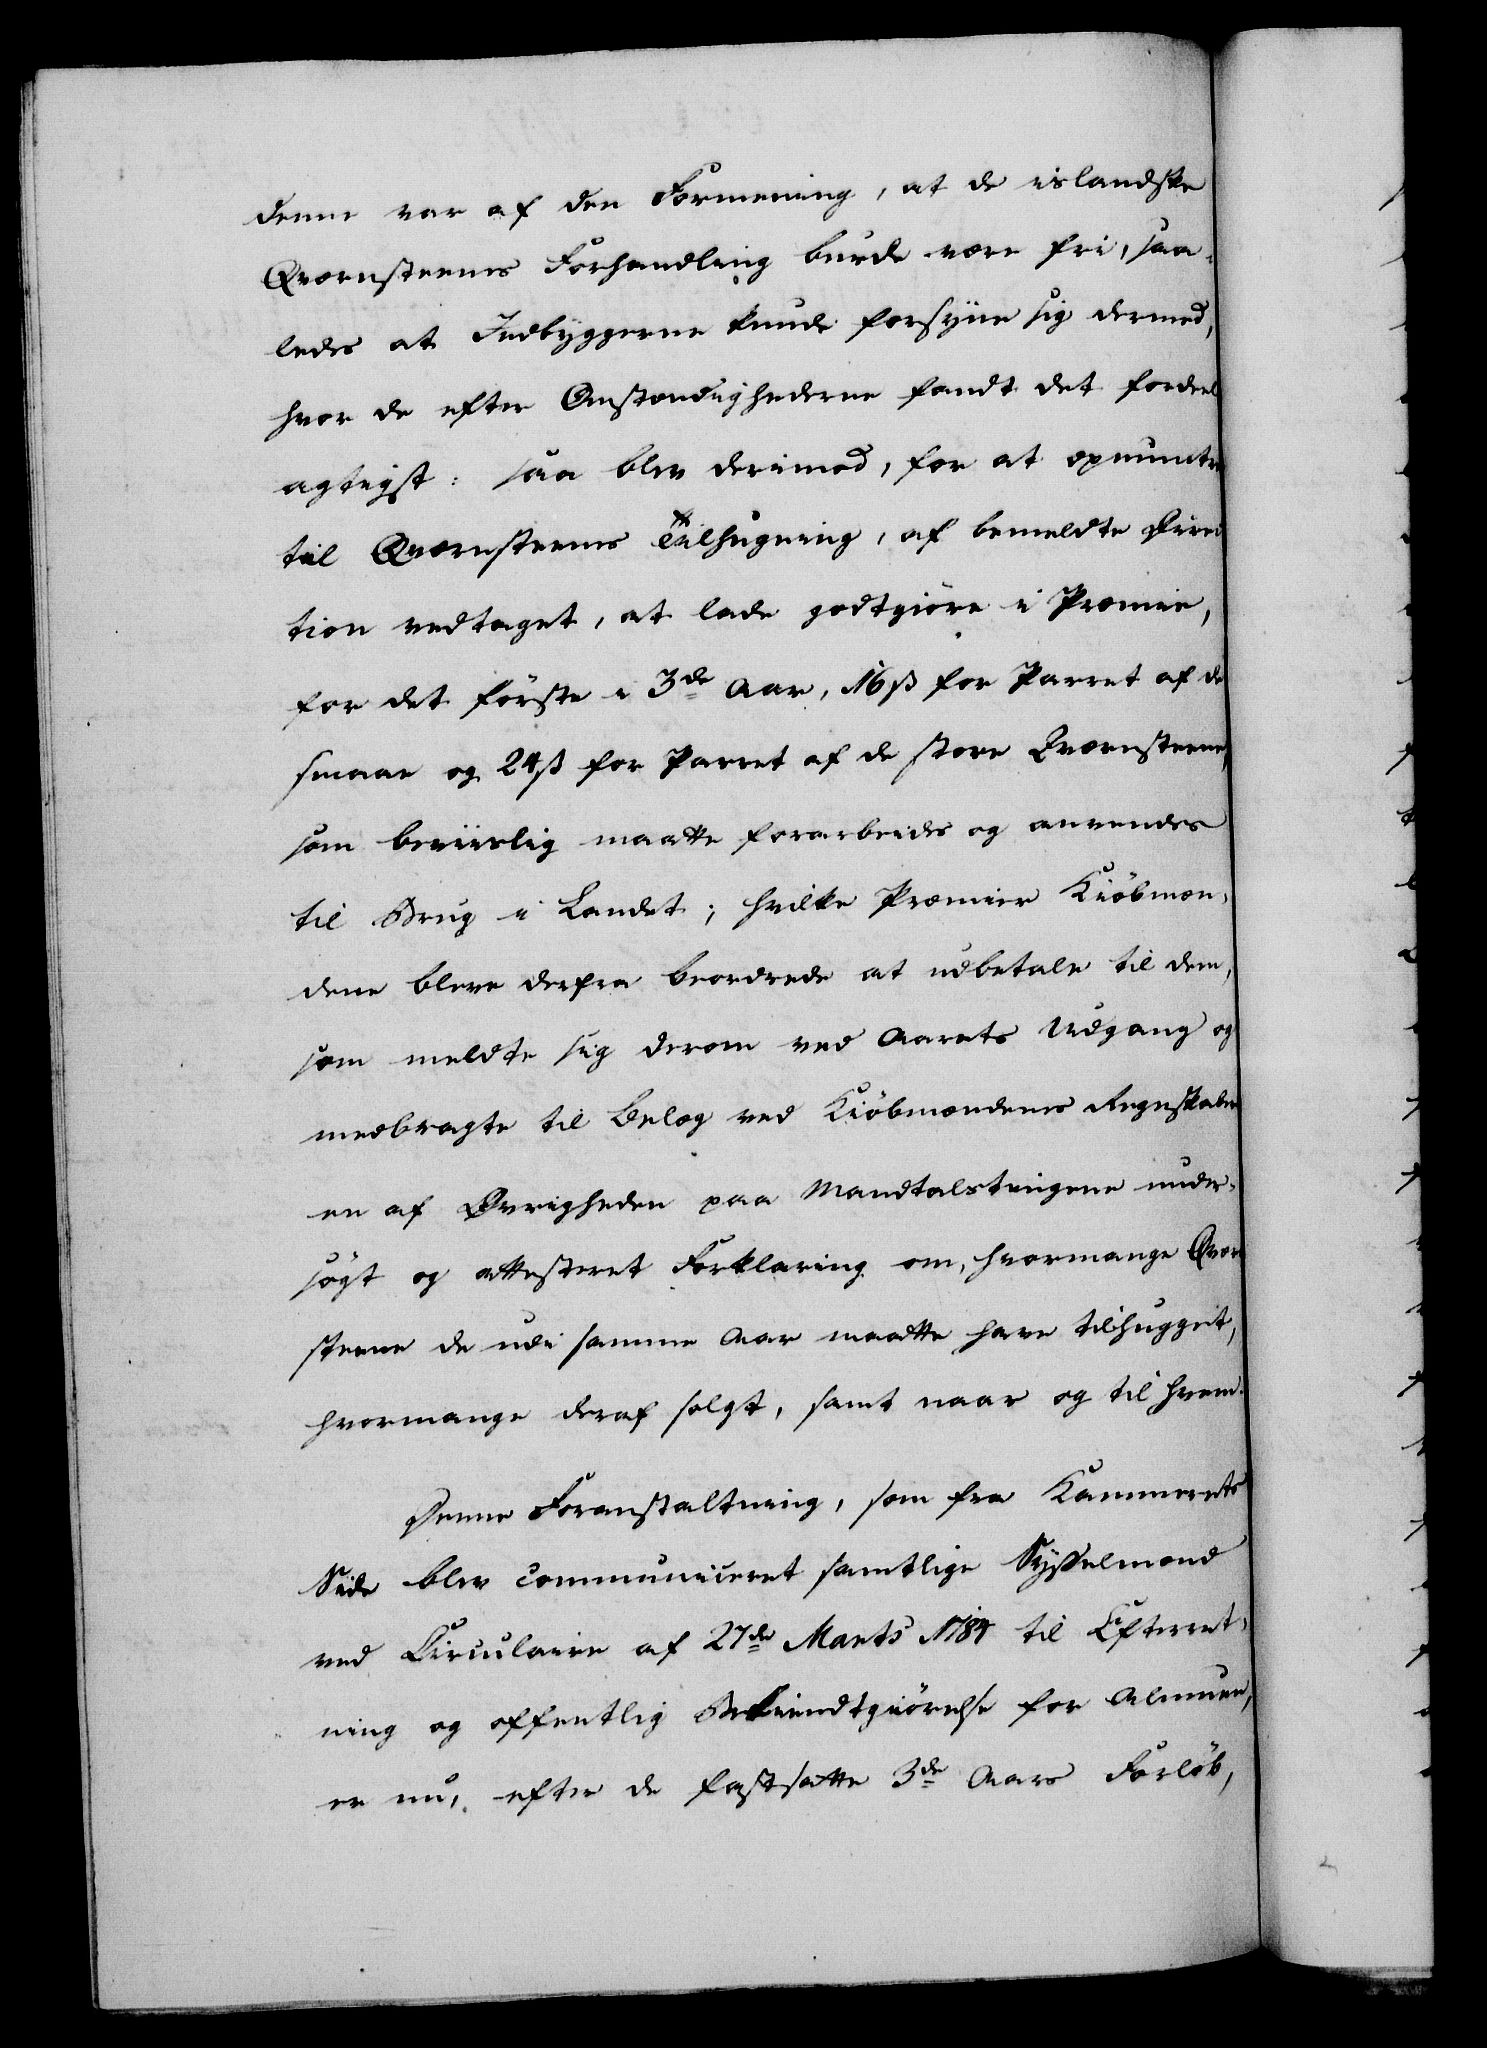 denne var af den Formening, at de islandske
Qværnsteenes Forhandling burde være fri, saa-
ledes at Indbyggerne kunde forsyne sig dermed,
hvor de efter Omstændighederne fandt det fordeel
agtigst: saa blev derimod, for at opmuntre
til Qværnsteenes Tilhugning, af bemeldte Direc
tion vedtaget, at lade godtgiöre i Præmie,
for det förste i 3de Aar, 16 ß for Parret af de
smaae og 24 ß for Parret af de store Qværnsteene,
som beviislig maatte forarbeides og anvendes
til Brug i Landet; hvilke Præmier Kiöbmæn-
dene bleve derfra beordrede at udbetale til dem,
som meldte sig derom ved Aarets Udgang og
medbragte til Belæg ved Kiöbmændenes Regnskaber
en af Øvrigheden paa Mandtalstingene under-
sögt og attesteret Forklaring om, hvormange Qværn
steene de udi samme Aar maatte have tilhugget,
hvormange deraf solgt, samt naar og til hvem.
Denne Foranstaltning, som fra Kammerets
Side blev communiceret samtlige Sysselmænd
ved Circulaire af 27de Marts 1784 til Efterret-
ning og offentlig Bekiendtgiörelse for Almuen,
er nu, efter de fastsatte 3de Aars Forlöb,